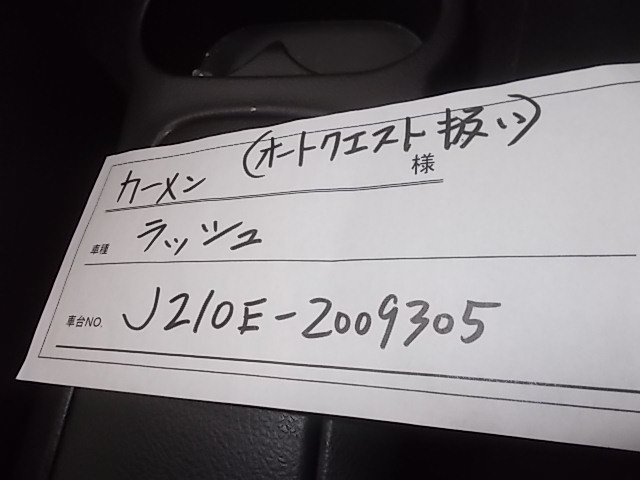 (オートクエスト扱い)
カーメン 様
車種 ラッシュ
車台NO. J210E-2009305